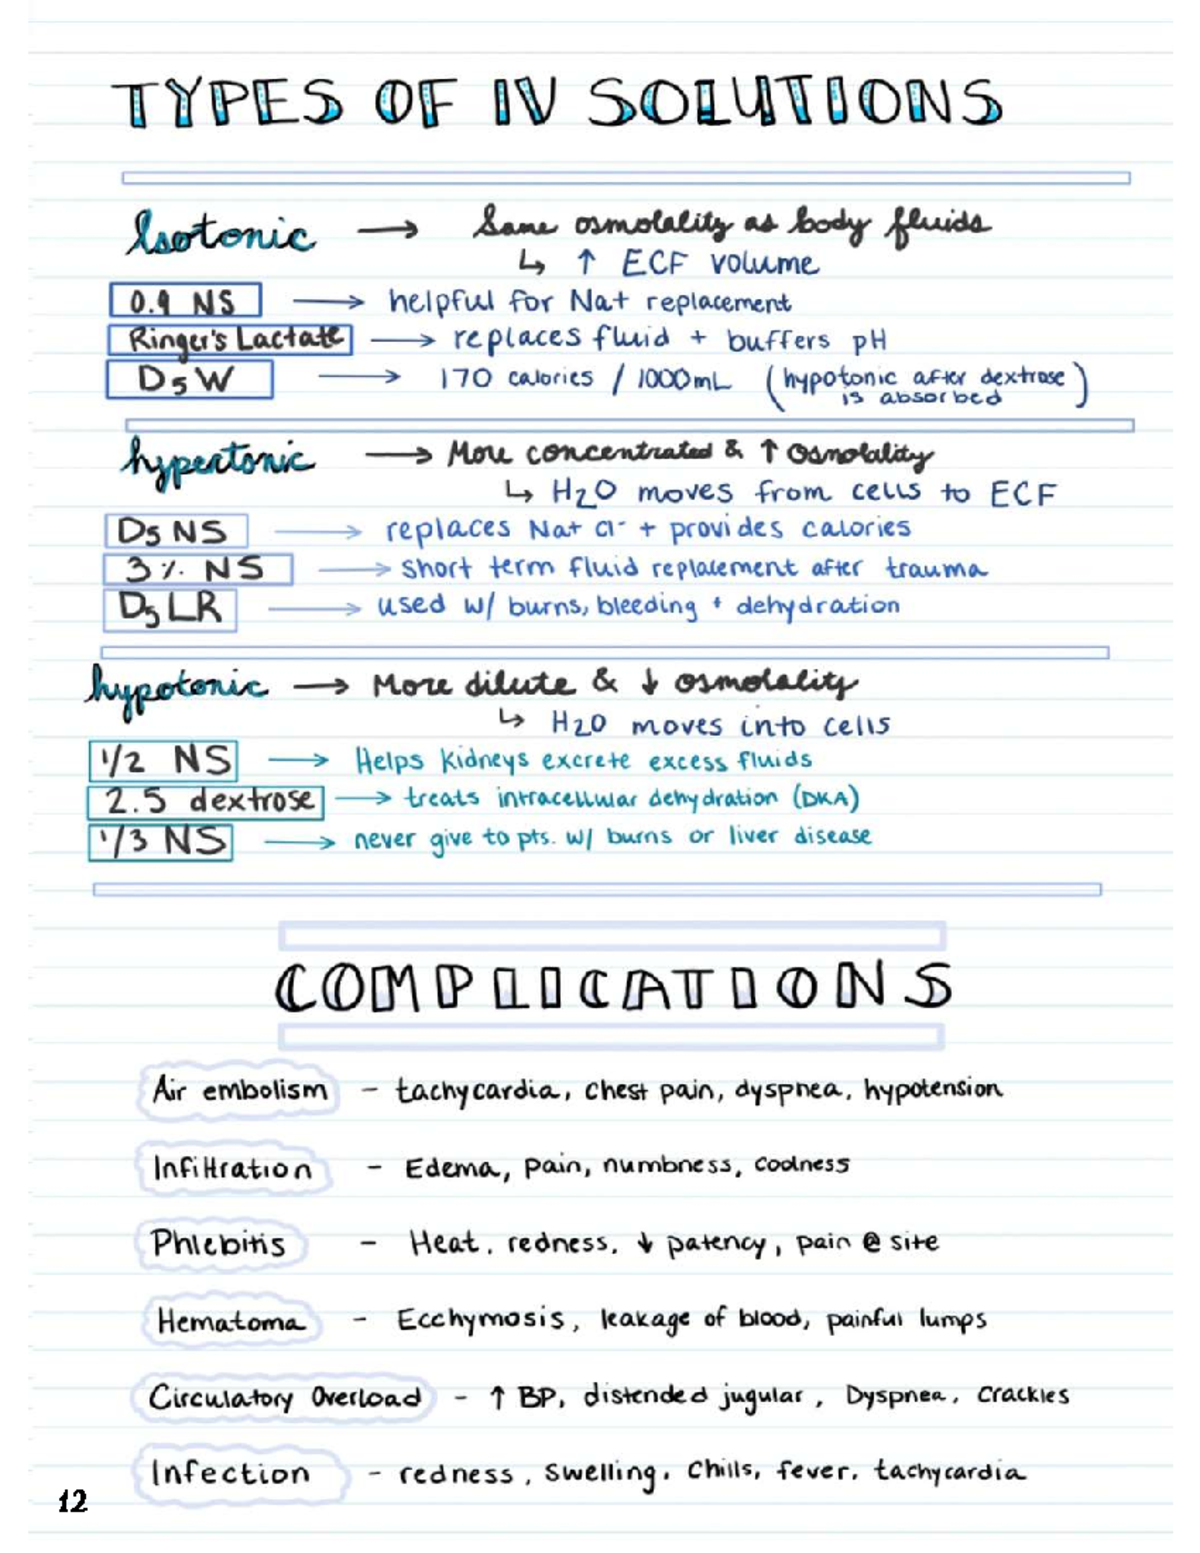 TYPES OF IV SOLUTIONS
Isotonic → Same osmolality as body fluids
↳ ↑ ECF volume
0.9 NS → helpful for Na+ replacement
Ringer's Lactate → replaces fluid + buffers pH
D5W → 170 calories / 1000mL (hypotonic after dextrose
is absorbed)
hypertonic → More concentrated & ↑ Osmolality
↳ H2O moves from cells to ECF
D5 NS → replaces Na+ Cl- + provides calories
3% NS → short term fluid replacement after trauma
D5LR → used w/ burns, bleeding + dehydration
hypotonic → More dilute & ↓ osmolality
↳ H2O moves into cells
1/2 NS → Helps kidneys excrete excess fluids
2.5 dextrose → treats intracellular dehydration (DKA)
1/3 NS → never give to pts. w/ burns or liver disease
COMPLICATIONS
Air embolism - tachycardia, chest pain, dyspnea, hypotension
Infiltration - Edema, pain, numbness, coolness
Phlebitis - Heat, redness, ↓ patency, pain @ site
Hematoma - Ecchymosis, leakage of blood, painful lumps
Circulatory Overload - ↑ BP, distended jugular, Dyspnea, Crackles
Infection - redness, swelling, chills, fever, tachycardia
12